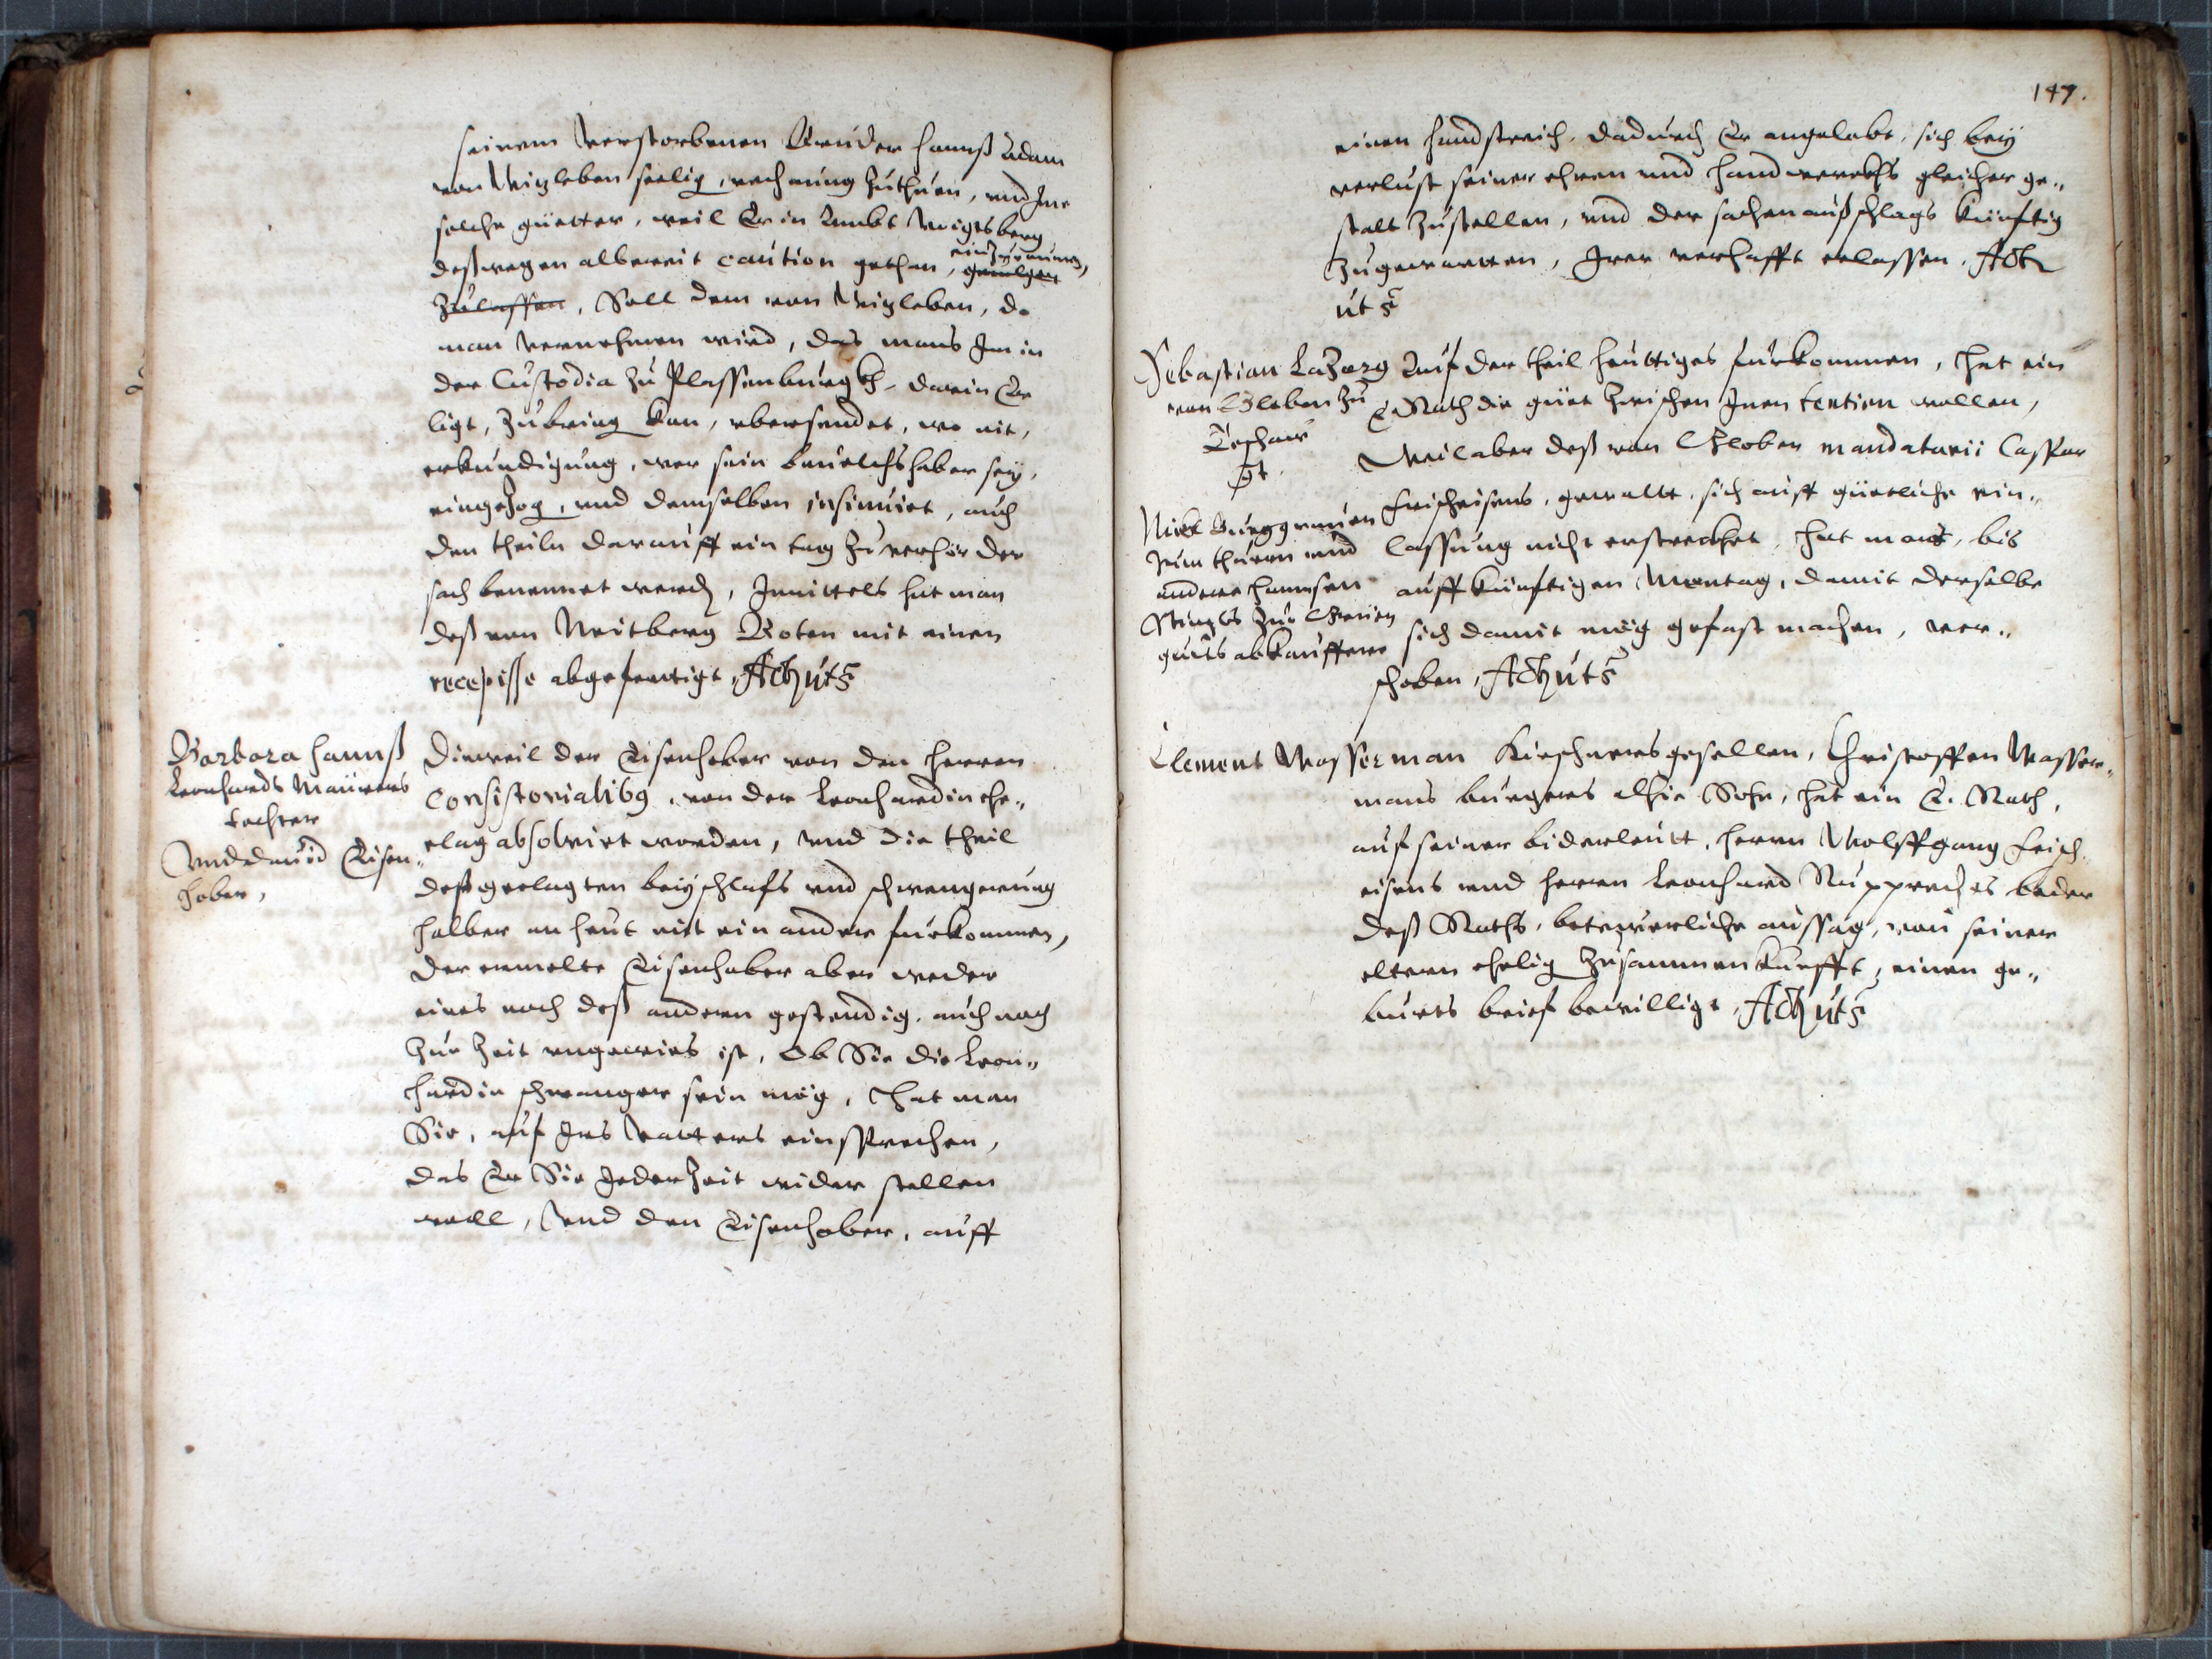 seinem verstorbenen Bruder Hannß Adam
von Wizleben seelig, rechnung zuthuen, und Ime
solche güetter, weil Er in Ambt Voigtsberg
deßwegen albereit caution gethan, einzuraumen,
zulassen, Soll dem von Wizleben, do
man vernehmen wird, das mans Im in
der Custodia zu Plassenburgkh, darein Er
ligt, zubring kan, ubersendet, wo nit,
erkundigung, wer sein bevelchshaber sey,
eingezog, und demselben insinuirt, auch
den theiln darauff ein tag zu verhör der
sach benennet werd, Inmittels hat man
deß von Weitberg Boten mit einen
recepisse abgefertigt, Act ut s
Barbara Hannß
Leonhardts Maürers
tochter
Und Davīd Eisen-
hober,
Dieweil der Eisenhober von den Herren
Consistorialibg, von der Leonhardin ehe-
clag absolvirt worden, und die theil
deß geclagten beyschlafs und schwengerung
halber an heut mit ein ander furkommen,
der ermelte Eisenhober aber weder
eines noch deß andern gestendig, auch noch
zur zeit ungewies ist, Ob Sie die Leon-
hardin schwanger sein mög, That man
Sie, auf Irs Vatters einsprechen,
das Er Sie Jederzeit wider stellen
woll, Und den Eisenhober, auff
147.
einen handstreich, dadurch Er angelobt, sich bey
verlust seiner ehren und handwerckhs gleicher ge-
stalt zustellen, und der sachen außschlags künftig
zugewartten, Irer verhafft erlassen, Act
ut s
Sebastian Lazarg
von Globen zu
Nickl Burggrauen
zum thuren und
andere Hannsen
guets abkauffere
Auf der theil heuttiges furkommen, That ein
E Rath die güet zwischen Inen tentirn wollen,
Weil aber deß von Globen mandatarii Caspar
Feischeisens, gewallt, sich auff güetliche ein-
lassung nicht erstreckhet, That mans, bis
auff künftigen Montag, damit derselbe
sich damit mög gefast machen, ver-
schoben, Act ut s
Clement Wasserman Kürschnersgesellen, Christoffen Wasser-
mans burgers Alhie Sohn, hat ein E. Rath,
auf seiner biderleutt, herrn Wolffgang Feisch-
eisens und herrn Leonhard Rupprechts beder
deß Raths, beteyerliche aussag, von seiner
eltern ehelig zusammenkunfft, einen ge-
burts brief bewilligt, Act ut s